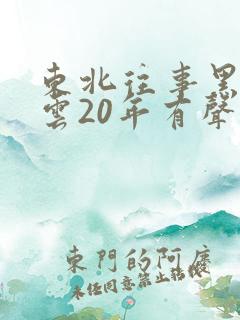 東北往事黑
雲20年有聲
東門的阿廣
未任同意禁止轉載